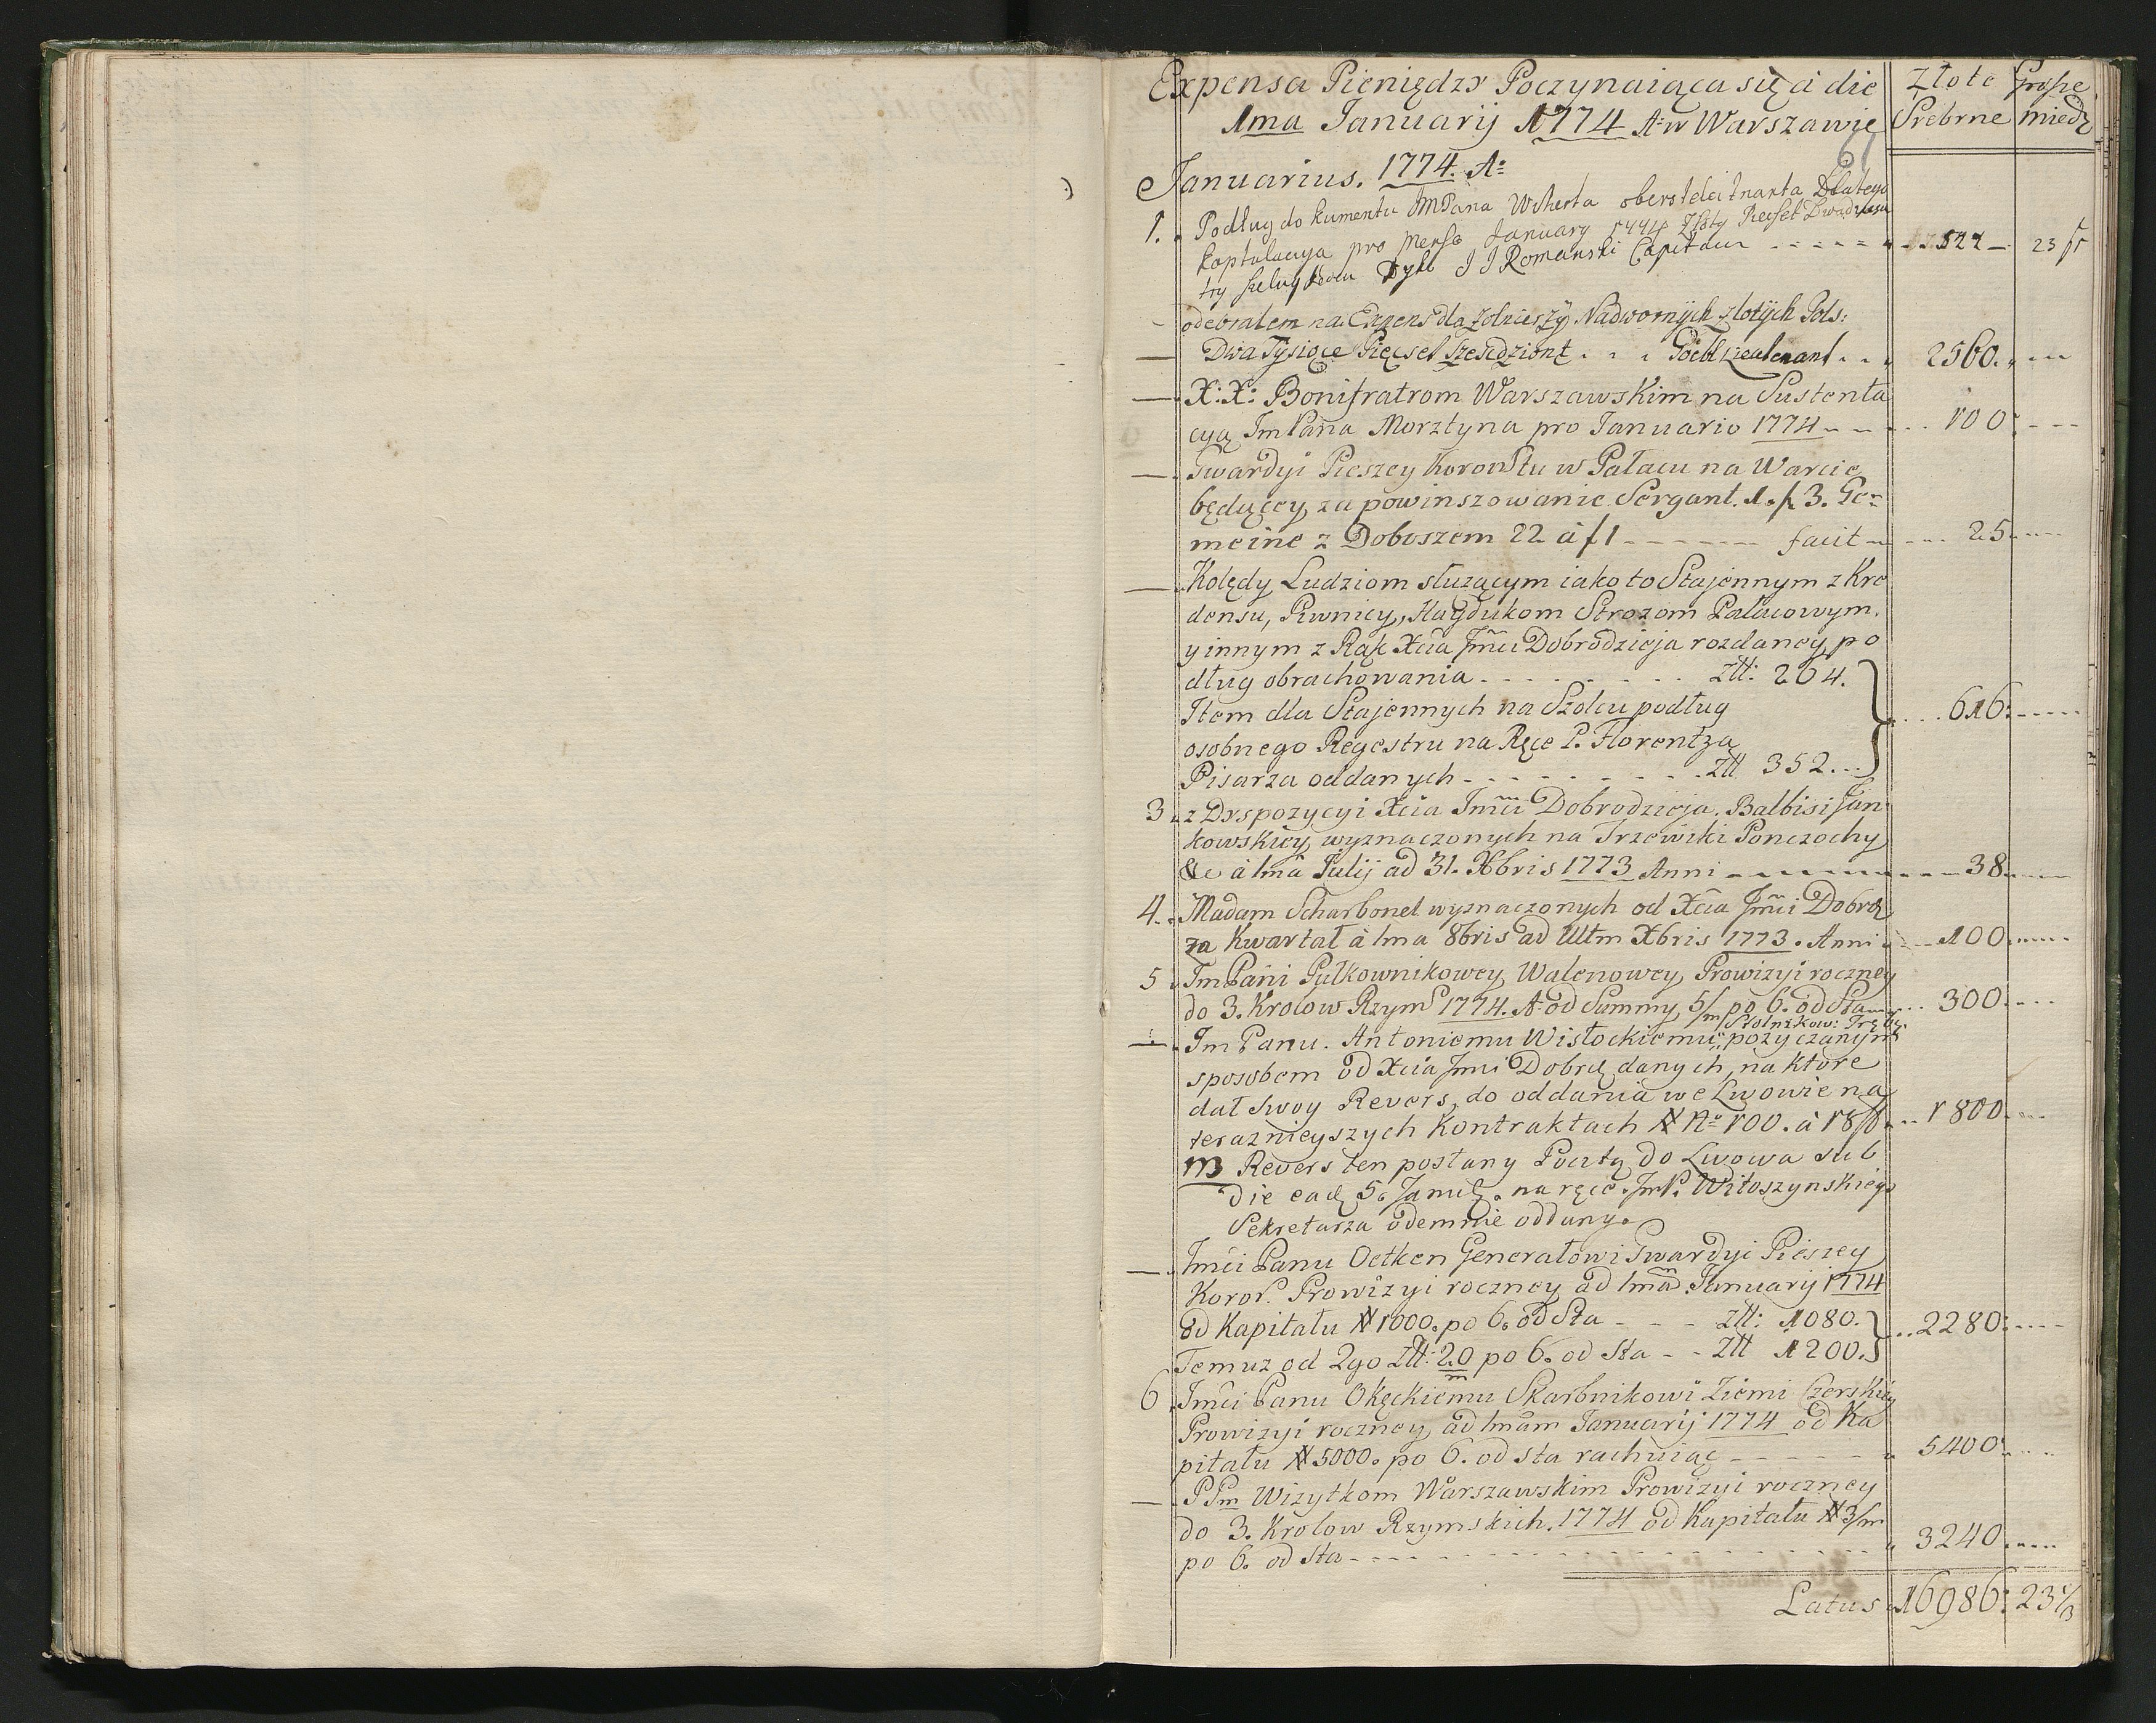 Expensa Pieniędzy Poczynaiąca się à die
1ma Januarij 1774 A: w Warszawie
Złote Srebrne
Grosze miedz
Januarius. 1774. A:
1. Podług dokumentu JMPana obersteleitnanta Dlatego
kaptulacya pro Mense January Złoty Piecset Dwadziescia
try Dytto J J Romanski Capitain - - - - - 23
odebralem na Expens dla Zolnieszy Nadwornÿch złotÿch Pols:
— Dwa Tÿsiące Pięcset Szescdziont . . . Goebl Lieutenant . . 2560. - - -
— X: X: Bonifratrom Warszawskim na Sustenta
cyą JmPana Morztyna pro Januario 1774 - - - 100 - - -
— Gwardyi Pieszey Koron Stu w Pałacu na Warcie
będącey, za powinszowanie Sergant. 1. f 3. Ge=
meine z Doboszem 22 à f 1 - - - - - facit - - - 25 - - -
— Kolędy Ludziom służącym iako to Stajennym z Kre
densu, Piwnicy, Haydukom Strozom Pałacowym
y innym z Rąk Xcia Jmći Dobrodzieja rozdaney, po
dług obrachowania - - - - - - złł: 264.
Item dla Stajennych na Szolcu podług
osobnego Regestru na Ręce P. Florentza
Pisarza oddanych - - - - - - złł 352. - - } 616: - - -
3. z Dyspozycyi Xcia Jmći Dobrodzieja. Balbisi Jan
kowskiey, wyznaczonych na Trzewiki Ponczochy
&c à 1mâ Julij ad 31. Xbris 1773 Anni - - - - - 38. - - -
4. Madam Scharbonel wyznaczonych od Xcia Jmći Dobrdz
za Kwartał à 1ma 8bris ad Ultm Xbris 1773. Anni - - 100. - - -
5. JmPani Pułkownikowey Walenowey, Prowizyi roczney
do 3. Krolow Rzyms 1774. A: od Summy 5/m po 6. od Sta - - 300. - - -
— JmPanu. Antoniemu Wisłockiemu /Stolnikow: Tręb:/ pozyczanym
sposobem od Xcia Jmći Dobrdz danych, na ktore
dał Swoy Revers, do oddania we Lwowie na
teraznieyszych Kontraktach # No 100. à 18 f - - 1800. - - -
NB Revers ten posłany Pocztą do Lwowa sub
die ead 5. Janu. na ręce. JmP. Witoszynskiego
Sekretarza odemnie oddany.
— Jmći Panu Oetken Generałowi Gwardyi Pieszey
Koron. Prowizyi roczney ad 1mâ Januarij 1774
od Kapitału # 1000. po 6. od Sta - - - złł: 1080.
Temuz od 2go złł: 20/m po 6. od sta - - złł 1200. } 2280: - - -
6. Jmći Panu Okęckiemu Skarbnikowi Ziemi Czerskiey
Prowizyi roczney ad 1mam Januarij 1774 od Ka
pitału # 5000. po 6. od sta rachuiąc - - - - - 5400. - - -
— PPm Wizytkom Warszawskim Prowizyi roczney
do 3. Krolow Rzymskich. 1774 od Kapitału # 3/m
po 6. od sta - - - - - - - - - - 3240. - - -
Latus 16986: 23 1/3